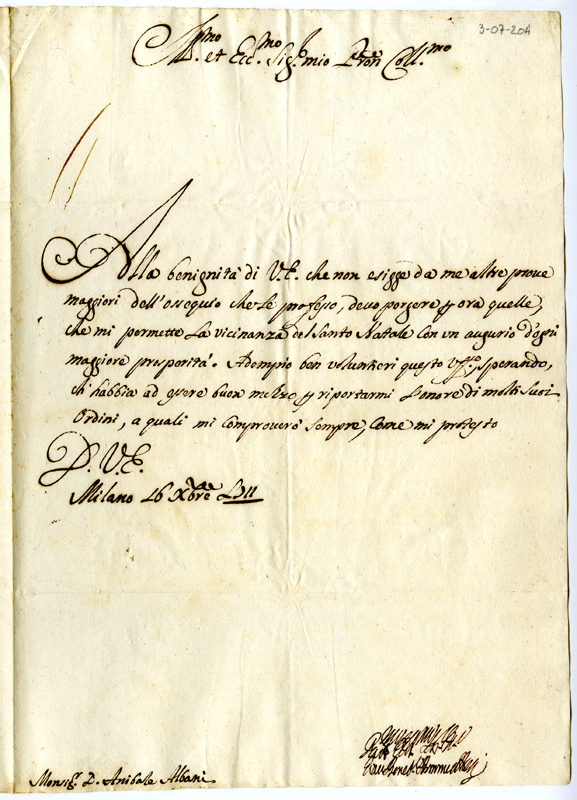 3-07-204
Ill.mo et Ecc.mo Sig.r mio P.rone Coll.mo
Alla benignità di V.E. che non esigge da me altre prove
maggiori dell'ossequio che Le professo, devo porgere p ora quelle,
che mi permette La vicinanza del Santo Natale con un augurio d'ogni
maggiore prosperità. Adempio ben volontieri questo Uff.o, sperando,
ch'habbia ad essere buon mezzo p riportarmi l'onore di molti Suoi
Ordini, a quali mi comproverò sempre, Come mi protesto
D. V.E.
Milano 16 Xbre 1711
Monsig.r D. Anibale Albani